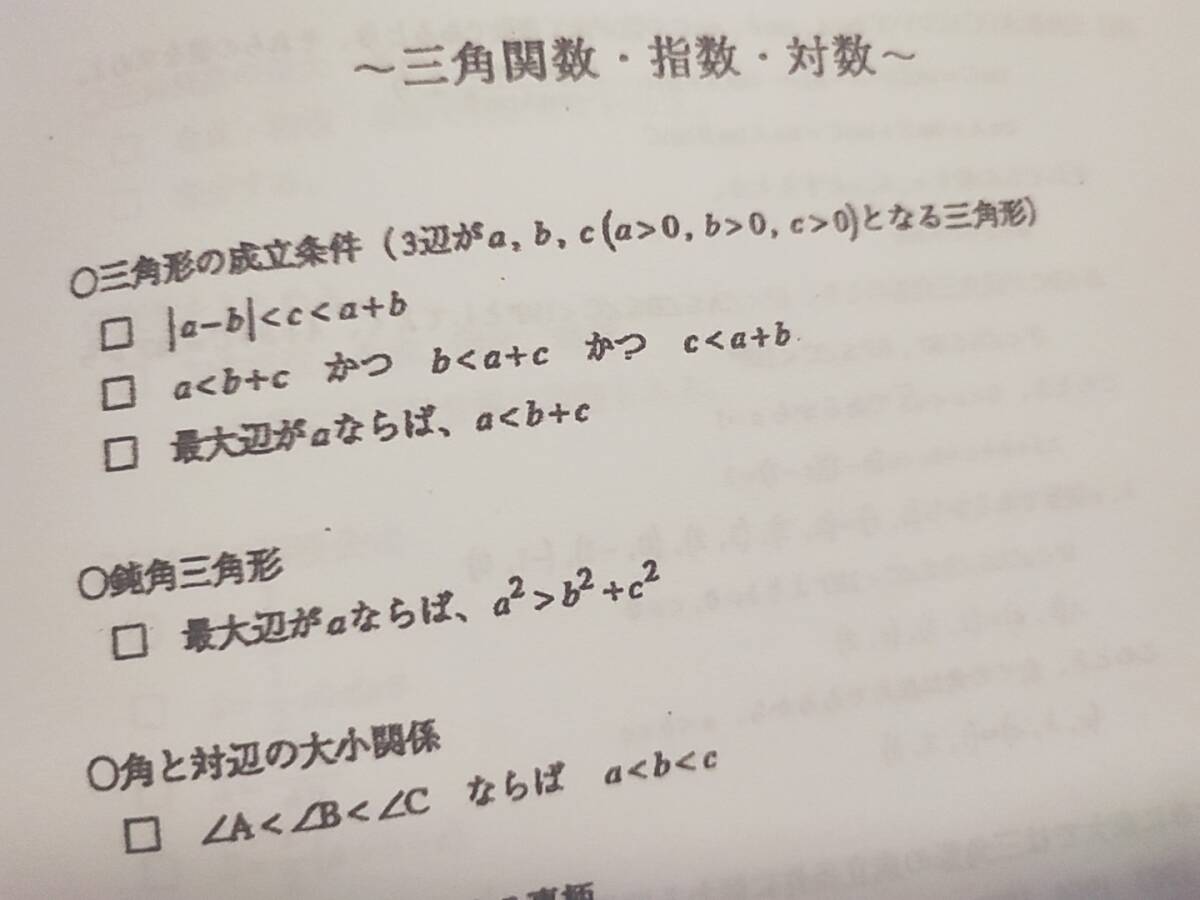 ～三角関数・指数・対数～
○三角形の成立条件（3辺がa, b, c(a>0, b>0, c>0)となる三角形）
□ |a-b|<c<a+b
□ a<b+c かつ b<a+c かつ c<a+b
□ 最大辺がaならば、a<b+c
○鈍角三角形
□ 最大辺がaならば、a²>b²+c²
○角と対辺の大小関係
□ ∠A<∠B<∠C ならば a<b<c